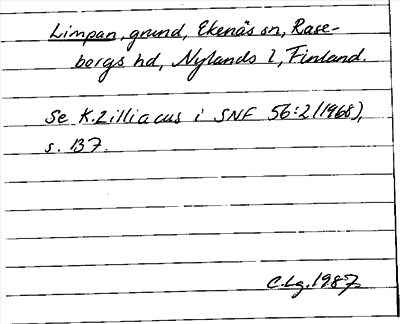 Limpan, grund, Ekenäs sn, Rase-
borgs hd, Nylands l, Finland.
Se K. Zilliacus i SNF 56:2 (1968),
s. 137.
C. Lg. 1987.